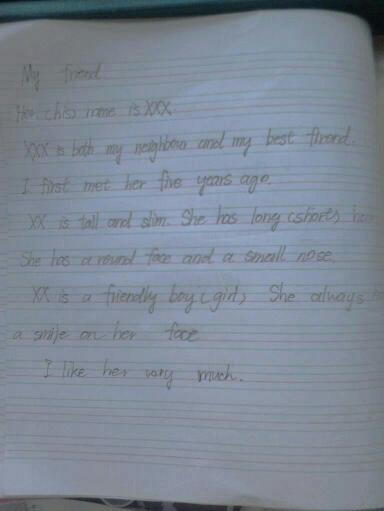 My friend
Her (his) name is XXX.
XXX is both my neighbour and my best friend.
I first met her five years ago.
XX is tall and slim. She has long (short)
She has a round face and a small nose.
XX is a friendly boy (girl) She always
a smile on her face
I like her very much.